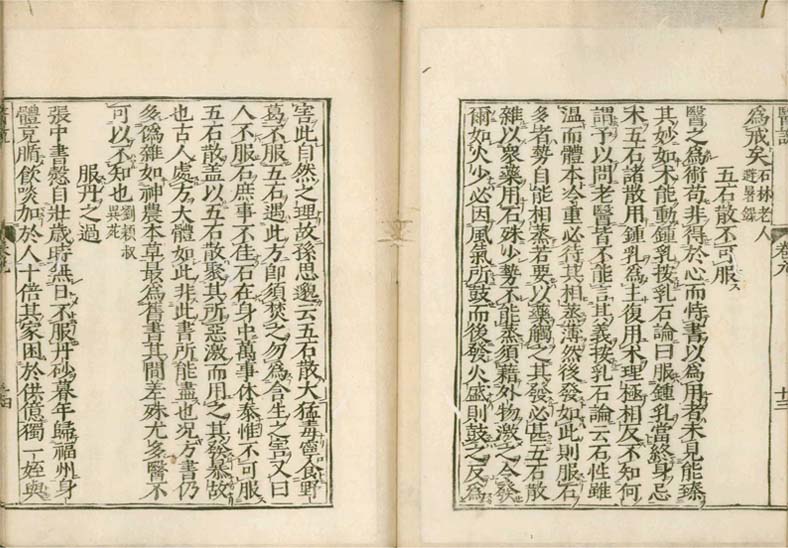 爲戒矣石林老人避暑錄
五石散不可服
醫之爲術苟非得於心而恃書以爲用者未見能臻
其妙如朮能動鍾乳按乳石論曰服鍾乳當終身忌
朮五石諸散用鍾乳爲主復用朮理極相反不知何
謂予以問老醫皆不能言其義按乳石論云石性雖
溫而體本冷重必待其相蒸薄然後發如此則服石
多者勢自能相蒸若要以藥觸之其發必甚五石散
雜以衆藥用石殊少勢不能蒸須藉外物激之令發
爾如火少必因風氣所鼓而後發火盛則鼓之反爲
害此自然之理故孫思邈云五石散大猛毒寧食野
葛不服五石遇此方即須焚之勿爲含生之害又曰
人不服石庶事不佳石在身中萬事休泰惟不可服
五石散蓋以五石散聚其所惡激而用之其發暴故
也古人處方大體如此非此書所能盡也况方書仍
多僞雜如神農本草最爲舊書其間差殊尤多醫不
可以不知也劉穎叔異苑
服丹之過
張中書慤自壯歲時無日不服丹砂暮年歸福州身
體充膓飲啖加於人十倍其家困於供億獨一姪與
醫說
卷九
十三